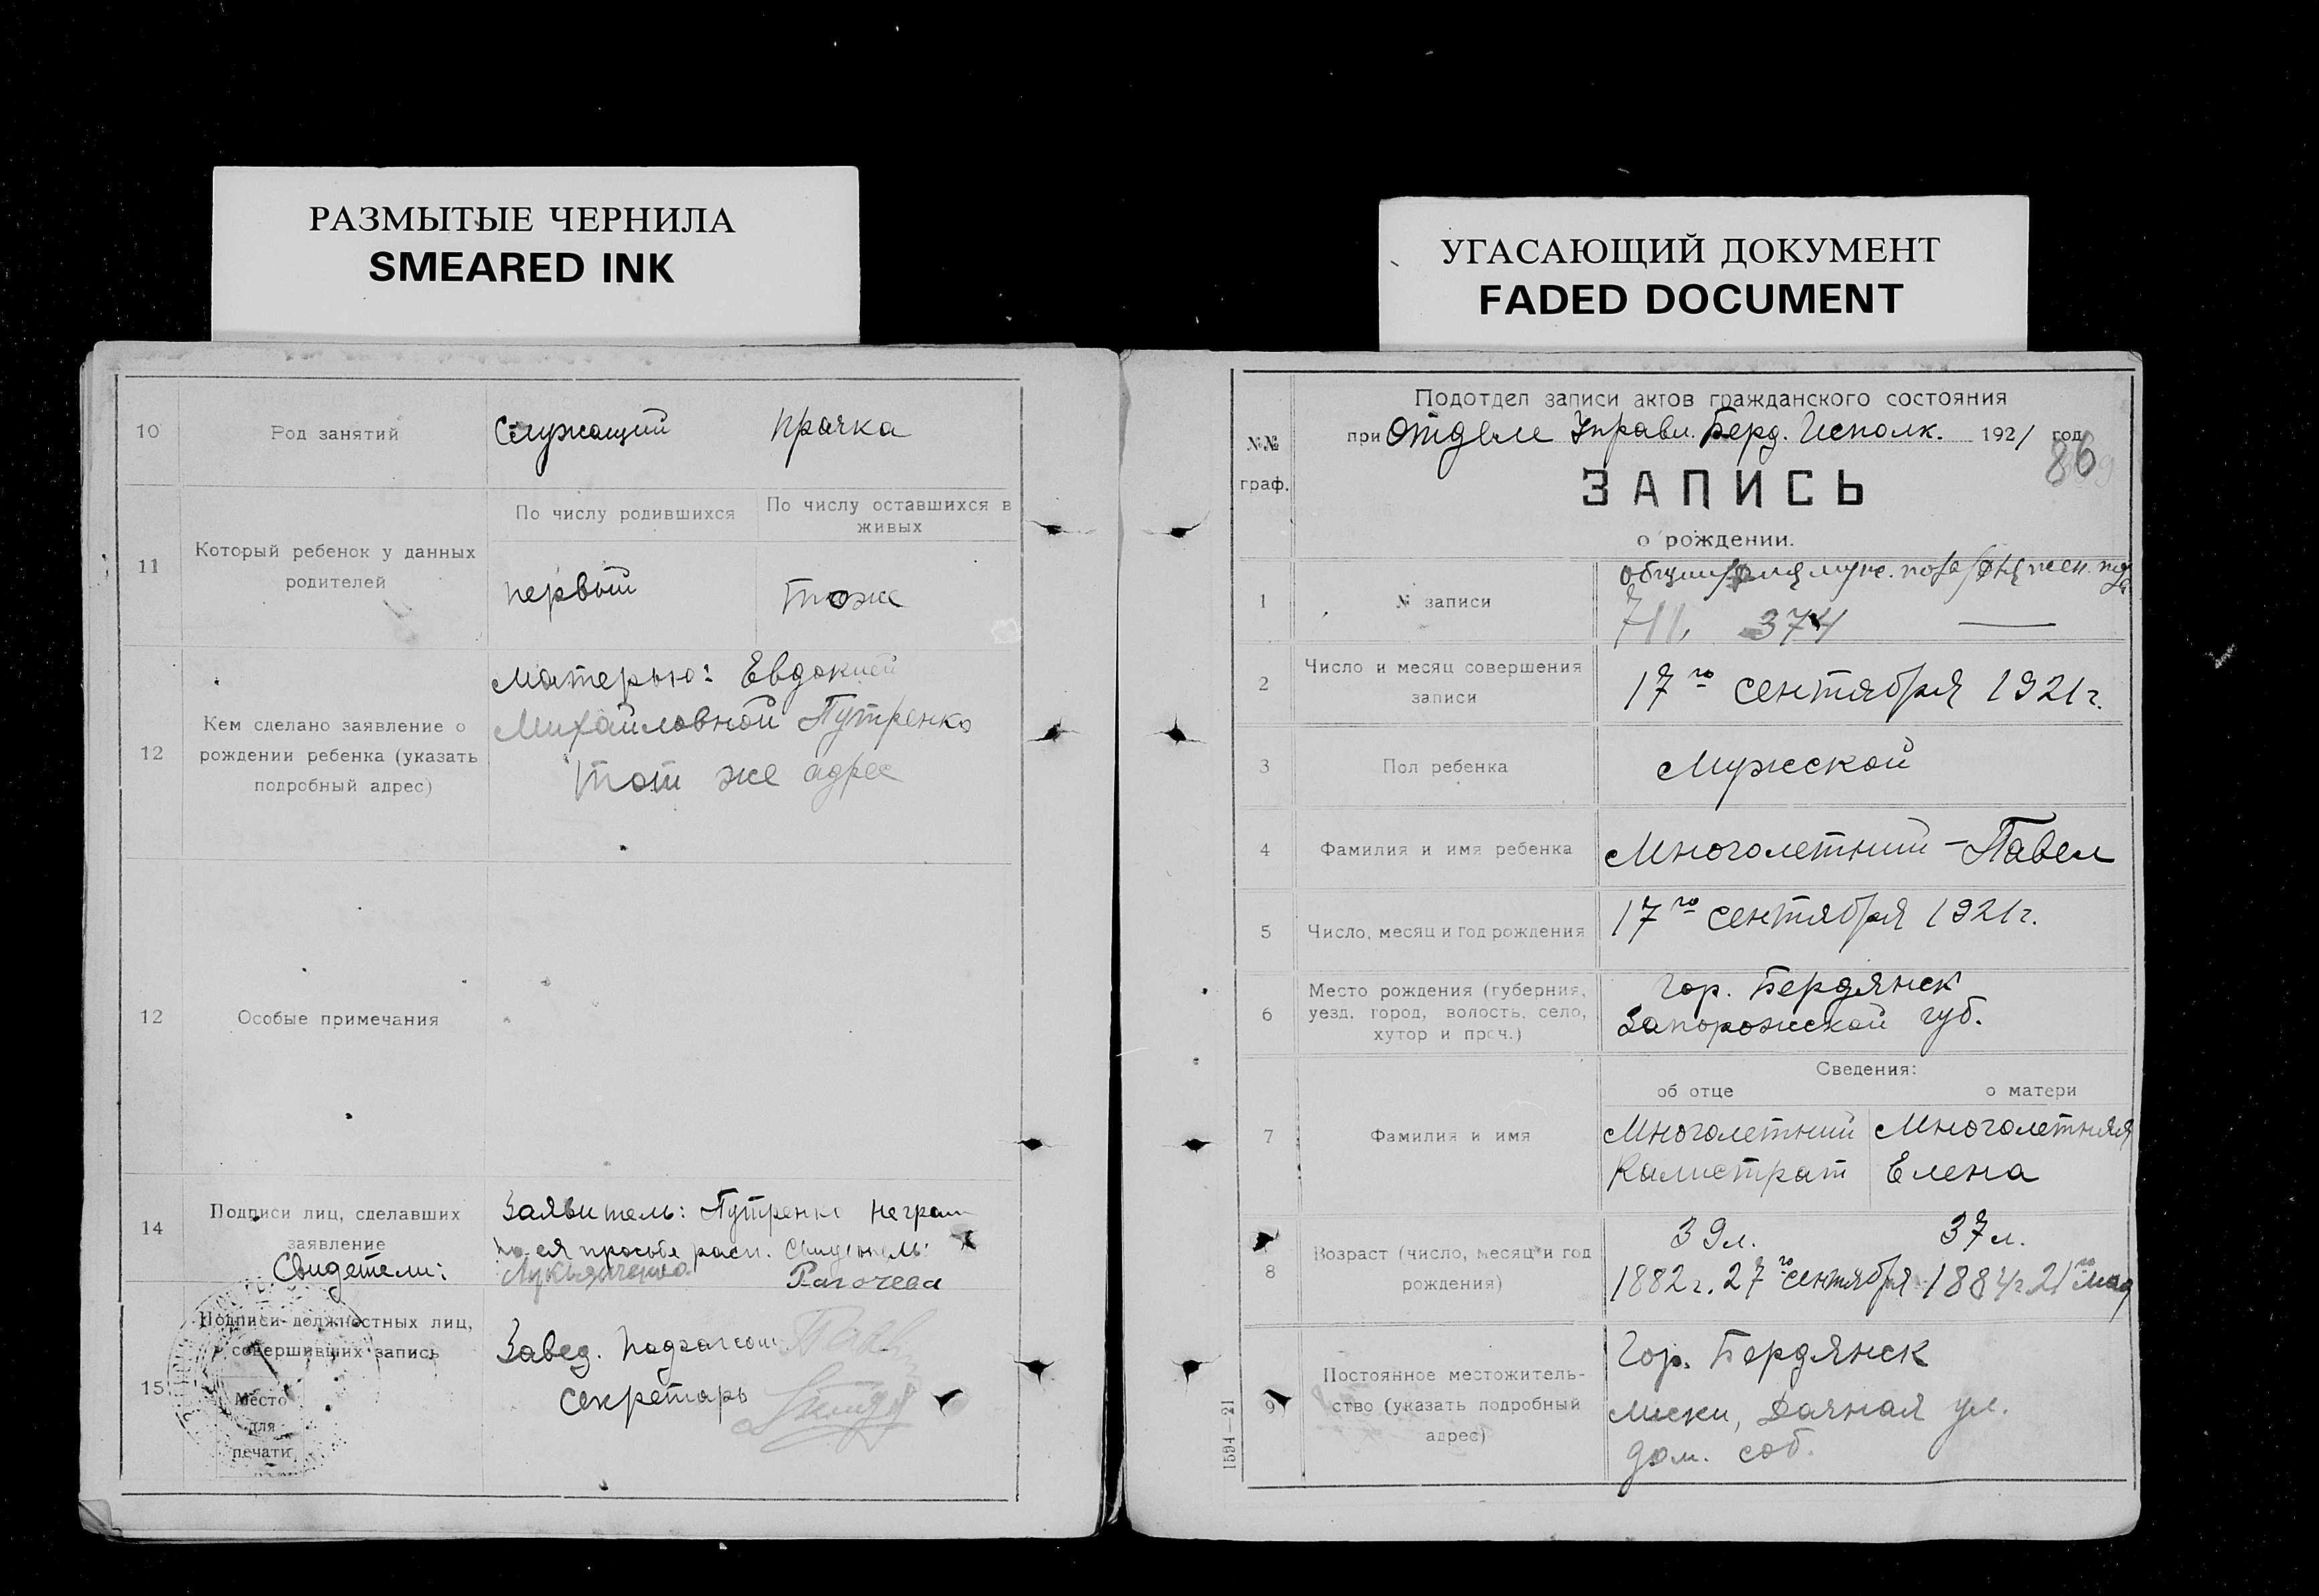 РАЗМЫТЫЕ ЧЕРНИЛА
SMEARED INK
10
Род занятий
Служащий
прачка
11
Который ребенок у данных
родителей
По числу родившихся
По числу оставшихся в
живых
первый
тоже
12
Кем сделано заявление о
рождении ребенка (указать
подробный адрес)
Матерью: Евдокией
Михайловной Путренко
тот же адрес
12
Особые примечания
14
Подписи лиц, сделавших
заявление
Свидетели:
Заявитель: Путренко неграм
по ея просьбе расп. Свидетель:
Рагочева
15
Подписи должностных лиц,
совершивших запись
Место
для
печати
Завед. Подзагсом
Секретарь
УГАСАЮЩИЙ ДОКУМЕНТ
FADED DOCUMENT
№№
граф.
Подотдел записи актов гражданского состояния
при Отделе Управл. Берд. Исполк. 1921 год
86
ЗАПИСЬ
о рождении.
1
№ записи
общий для муж. пола для жен. пола
711, 374 —
2
Число и месяц совершения
записи
17го сентября 1921г.
3
Пол ребенка
Мужской
4
Фамилия и имя ребенка
Многолетний - Павел
5
Число, месяц и год рождения
17го сентября 1921г.
6
Место рождения (губерния,
уезд, город, волость, село,
хутор и проч.)
Гор. Бердянск
Запорожской губ.
Сведения:
об отце
о матери
7
Фамилия и имя
Многолетний
Калистрат
Многолетняя
Елена
8
Возраст (число, месяц и год
рождения)
39л.
37л.
1882г. 27го сентября
1884г. 21го мая
9
Постоянное местожитель-
ство (указать подробный
адрес)
Гор. Бердянск
Лиски, Дачная ул.
дом. соб.
1594—21